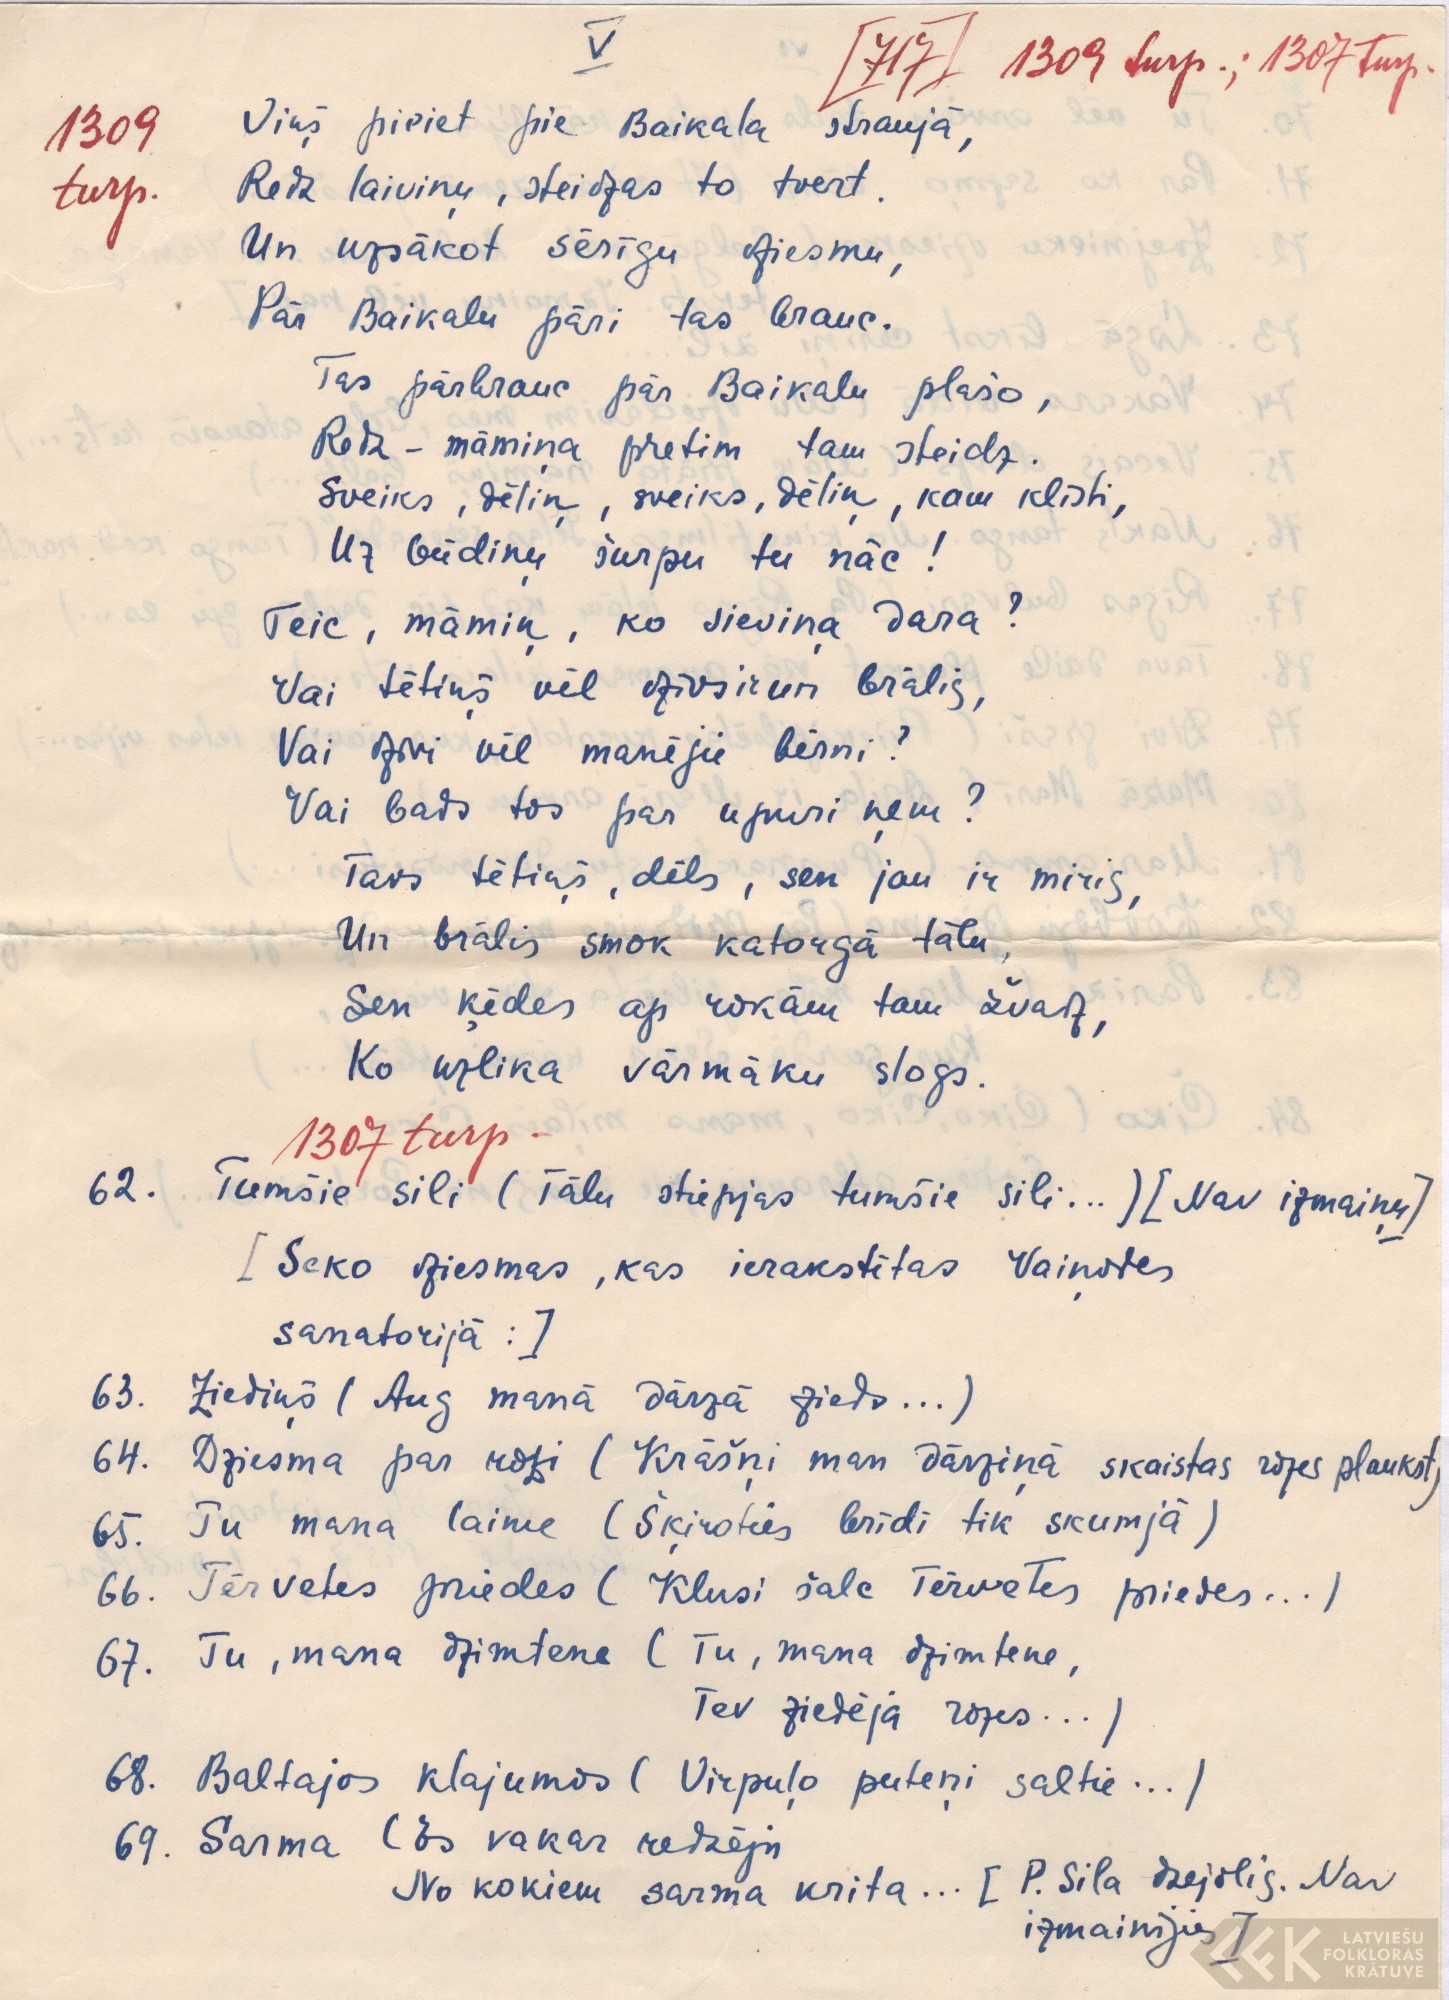 V
[717] 1309 turp.; 1307 turp.
1309
turp.
Viņš pieiet pie Baikala straujā,
Redz laiviņu, steidzas to tvert.
Un uzsākot sērīgu dziesmu,
Pār Baikalu pāri tas brauc.
Tas pārbrauc pār Baikalu plašo,
Redz - māmiņa pretim tam steidz.
Sveiks, dēliņ, sveiks, dēliņ, kam klīsti,
Uz būdiņu šurpu tu nāc!
Teic, māmiņ, ko sieviņa dara?
Vai tētiņš vēl dzīvs un brālis,
Vai dzīvi vēl manējie bērni?
Vai bads tos par upuri ņem?
Tavs tētiņš, dēls, sen jau ir miris,
Un brālis smok katorgā tālu,
Sen ķēdes ap rokām tam žvadz,
Ko uzlika vārmāku slogs.
1307 turp.
62. Tumšie sili (Tālu stiepjas tumšie sili...) [Nav izmaiņu]
[Seko dziesmas, kas ierakstītas Vaiņodes
sanatorijā:]
63. Ziediņš (Aug manā dārzā zieds...)
64. Dziesma par rozi (Krāšņi man dārziņā skaistas rozes plaukst)
65. Tu mana laime (Šķiroties brīdi tik skumjā)
66. Tērvetes priedes (Klusi šalc Tērvetes priedes...)
67. Tu, mana dzimtene (Tu, mana dzimtene,
Tev ziedēja rozes...)
68. Baltajos klajumos (Virpuļo puteņi saltie...)
69. Sarma (Es vakar redzēju
No kokiem sarma krita... [P. Sila dzejolis. Nav
izmainījies]
LATVIEŠU
FOLKLORAS
KRĀTUVE